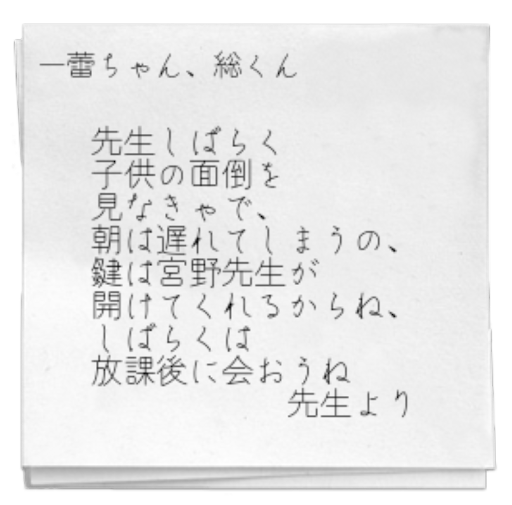 一蕾ちゃん、総くん
先生しばらく
子供の面倒を
見なきゃで、
朝は遅れてしまうの、
鍵は宮野先生が
開けてくれるからね、
しばらくは
放課後に会おうね
先生より